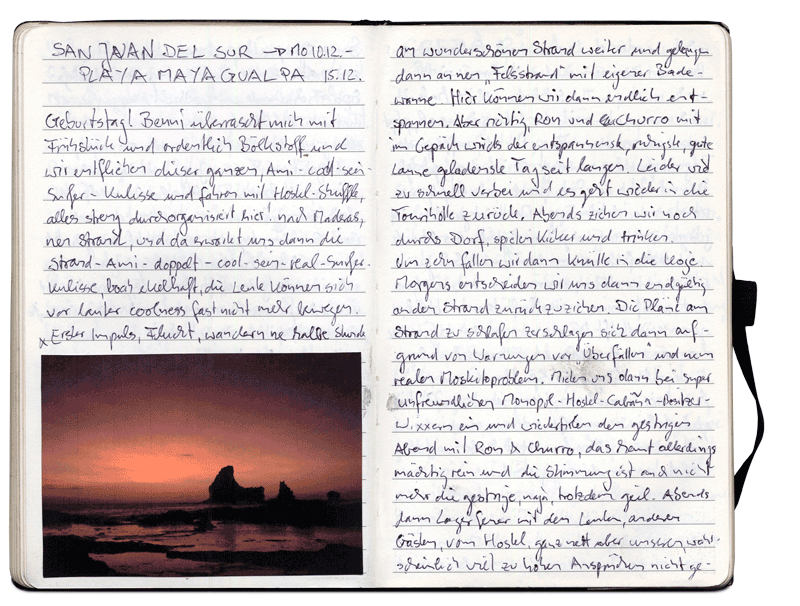 SAN JUAN DEL SUR → MO 10.12.-
PLAYA MAYAGUALPA 15.12.
Geburtstag! Benni überrascht mich mit
Frühstück und ordentlich Bölkstoff und
wir entfliehen dieser ganzen, Ami-cool-sein-
Surfer-Kulisse und fahren mit Hostel-Shuffle,
alles streng durchorganisiert hier! nach Maderas,
nen Strand, und da erwartet uns dann die
Strand-Ami-doppelt-cool-sein-real-Surfer-
Kulisse, boah ekelhaft, die Leute können sich
vor lauter coolness fast nicht mehr bewegen.
x Erster Impuls, Flucht, wandern ne halbe Stunde
am wunderschönen Strand weiter und gelangen
dann an nen „Felsstrand" mit eigener Bade-
wanne. Hier können wir dann endlich ent-
spannen. Aber richtig, Ron und Churro mit
im Gepäck wirds der entspannenste, ruhigste, gute
Laune geladenste Tag seit langem. Leider viel
zu schnell vorbei und es geht wieder in die
Tourihölle zurück. Abends ziehen wir noch
durchs Dorf, spielen Kicker und trinken.
Um zehn fallen wir dann Knülle in die Koje.
Morgens entscheiden wir uns dann endgültig
an den Strand zurückzuziehen. Die Pläne am
Strand zu schlafen zerschlagen sich dann auf-
grund von Warnungen vor „Überfällen" und nem
realen Moskitoproblem. Mieten uns dann bei super
unfreundlichen Monopol-Hostel-Cabaña-Besitzer-
Wixxern ein und wiederholen den gestrigen
Abend mit Ron & Churro, das haut allerdings
mächtig rein und die Stimmung ist auch nicht
mehr die gestrige, naja, trotzdem geil. Abends
dann Lagerfeuer mit den Leuten, anderen
Gästen, vom Hostel, ganz nett aber unseren, wahr-
scheinlich viel zu hohen Ansprüchen nicht ge-